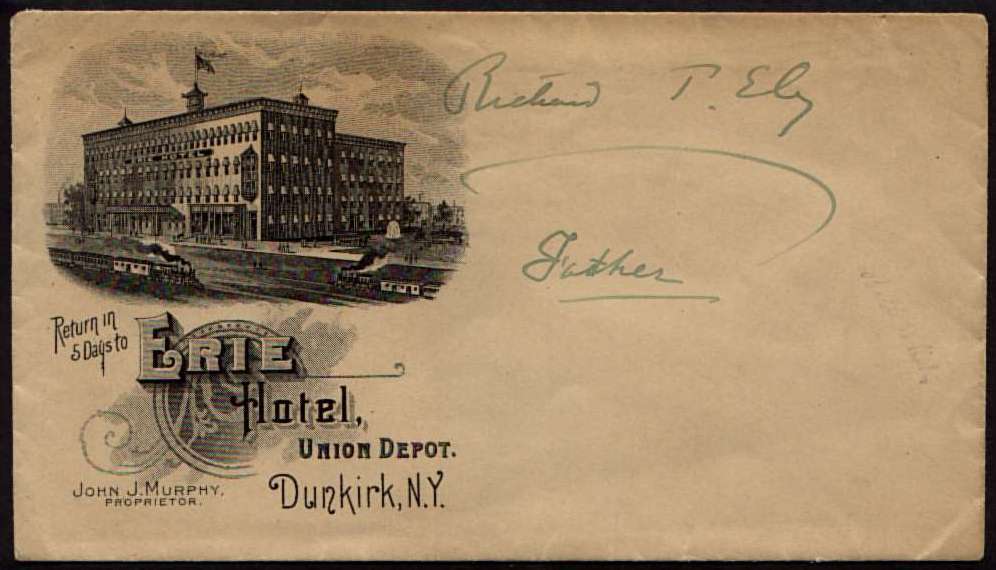 Richard T. Ely
Father
Return in
5 Days to
ERIE
Hotel,
UNION DEPOT.
JOHN J. MURPHY,
PROPRIETOR.
Dunkirk, N.Y.